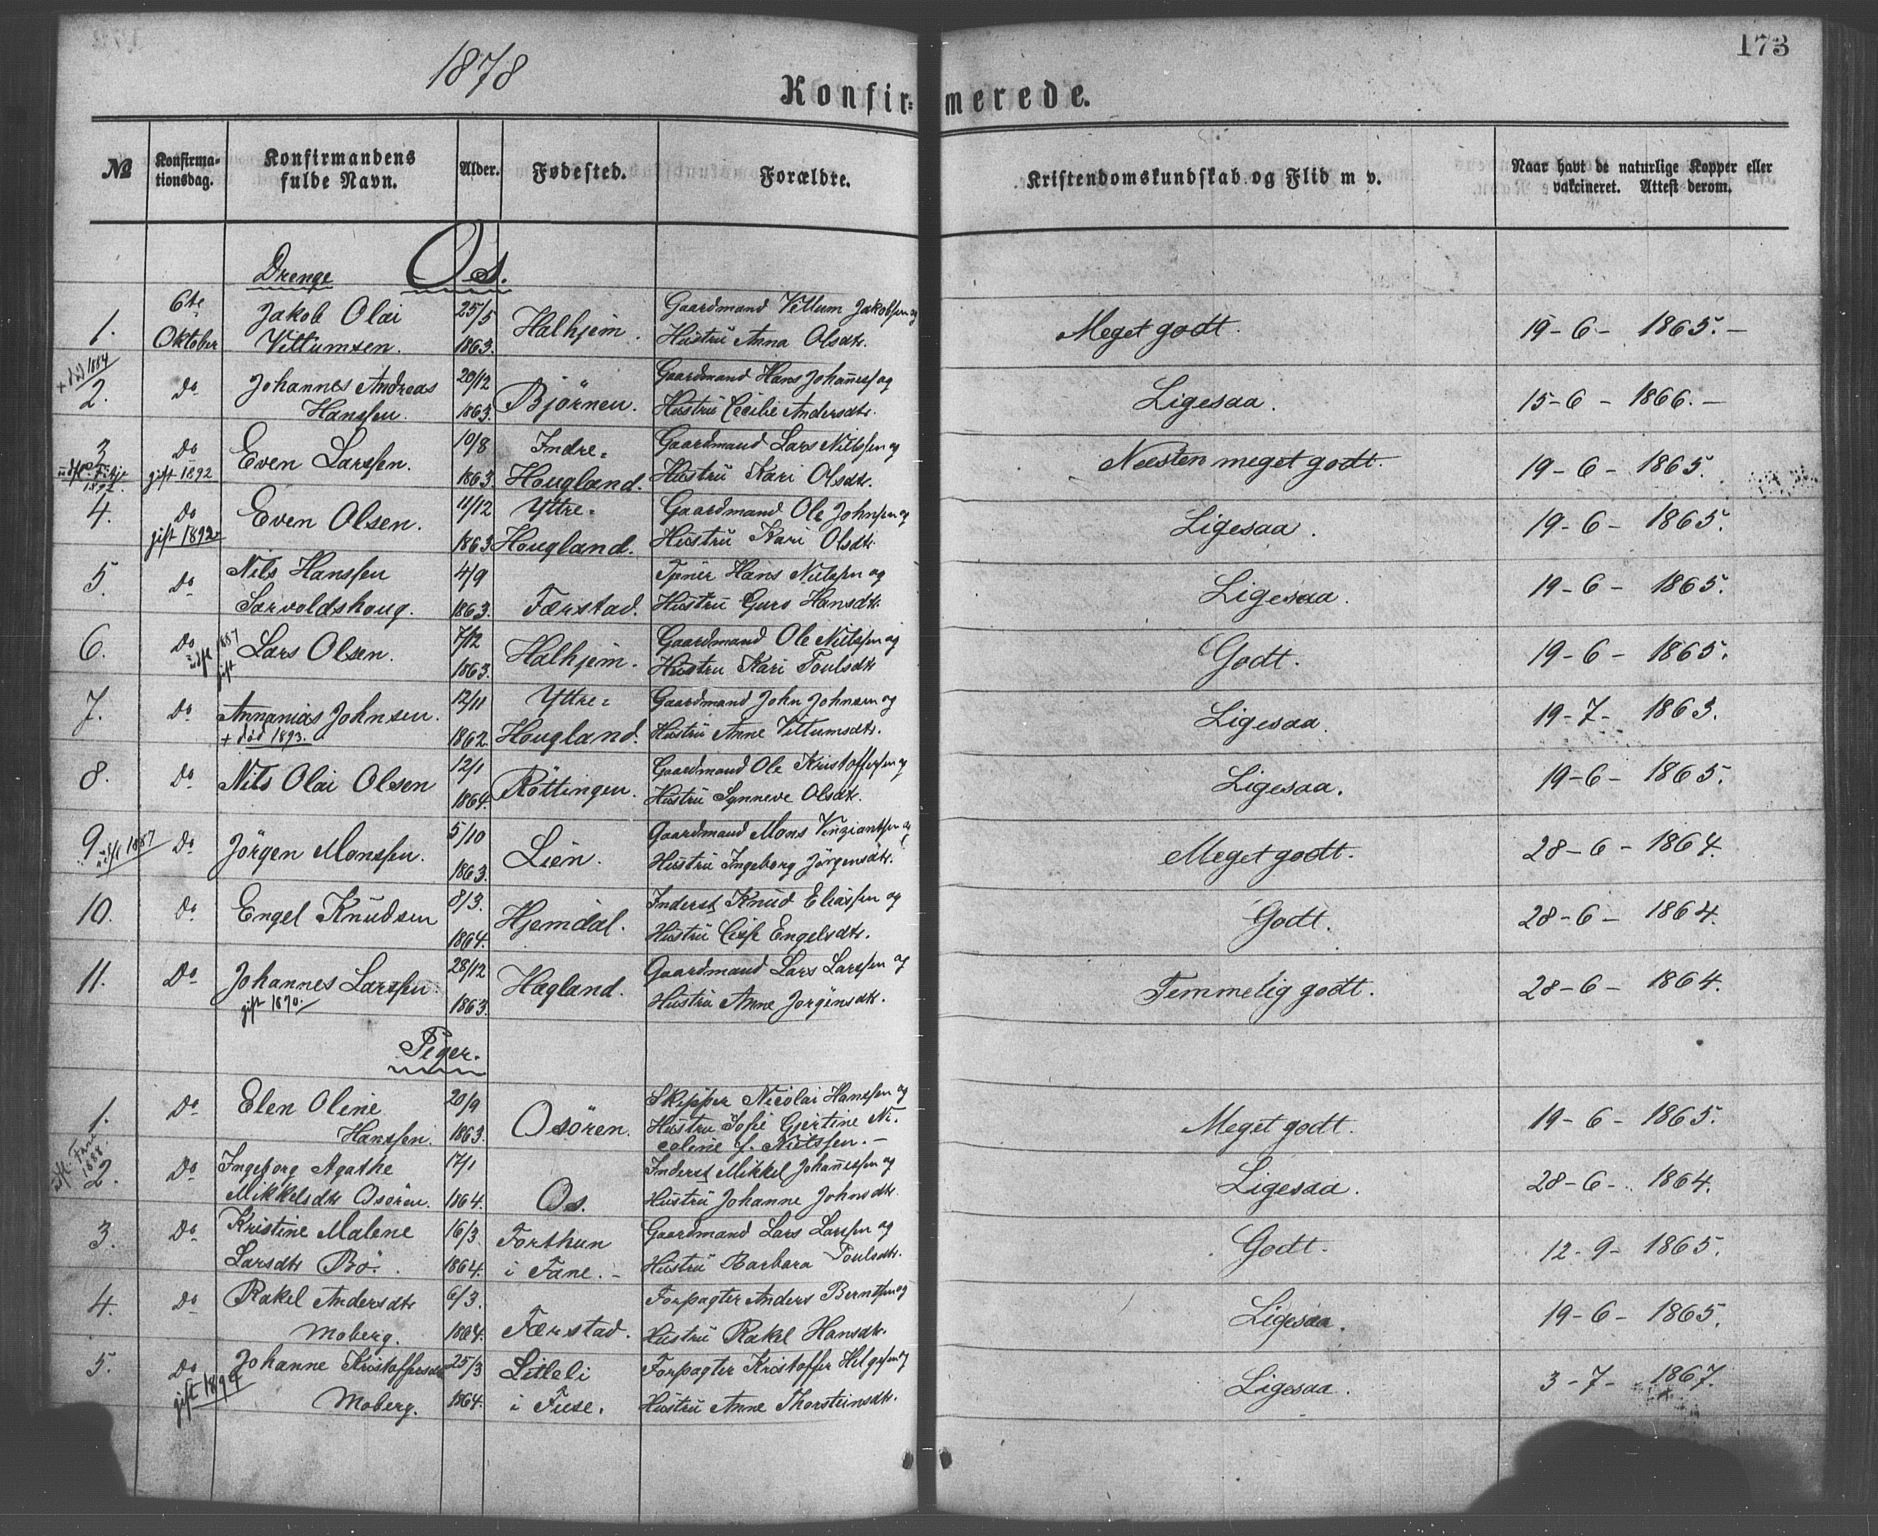 1878
173
Konfir=merede.
№ Konfirma-tionsdag. Konfirmandens fulde Navn. Alder. Fødested. Forældre. Kristendomskundskab og Flid m v. Naar havt de naturlige Kopper eller vakcineret. Attest derom.
Drenge Os.
1. 6te Oktober Jakob Olai Villumsen. 25/5 1863. Halhjem. Gaardmand Villum Jakobsen og Hustru Anna Olsdtr. Meget godt. 19-6- 1865.-
+ død 1884
2. Do Johannes Andreas Hanssen. 20/12 1863. Björnen. Gaardmand Hans Johannes. og Hustru Cecilie Andersdtr. Ligesaa. 15-6- 1866.-
3 Do Even Larssen. 10/8 1863. Indre= Hougland. Gaardmand Lars Nilssen og Hustru Kari Olsdtr. Neesten meget godt. 19-6- 1865.
1892. gift 1892
4. Do Even Olsen. 11/12 1863. Yttre= Hougland. Gaardmand Ole Johnsen og Hustru Kari Olsdtr. Ligesaa. 19-6- 1865.
gift 1892
5. Do Nils Hanssen Sarvoldshoug. 4/9 1863. Færstad. Hans Nielssen og Hustru Guro Hansdtr. Ligesaa. 19-6- 1865.
6. Do Lars Olsen. 7/12 1863. Halhjem. Gaardmand Ole Nielssen og Hustru Kari Poulsdtr. Godt. 19-6- 1865.
udfl 1887 gift
7. Do Annanias Johnsen. 12/11 1862. Yttre= Hougland. Gaardmand John Johnsen og Hustru Anne Villumsdtr. Ligesaa. 19-7- 1863.
+ död 1893.
8. Do Nils Olai Olsen 12/1 1864. Röttingen. Gaardmand Ole Kristoffersen og Hustru Synneve Olsdtr. Ligesaa. 19-6- 1865.
9 udfl 1887 Do Jörgen Monssen. 5/10 1863. Lien. Gaardmand Mons Vinziantsen og Hustru Ingeborg Jörgensdtr. Meget godt. 28-6- 1864.
10. Do Engel Knudsen 8/3. 1864. Hjemdal. Inderst Knud Eliassen og Hustru Engelsdtr. Godt. 28-6- 1864.
11. Do Johannes Larssen 28/12 1863. Hagland. Gaardmand Lars Larssen og Hustru Anne Jorgensdtr. Temmelig godt. 28-6- 1864.
gift 1890.
Piger.
1. Do Elen Oline Hanssen. 20/9 1863. Osören. Skipper Nicolai Hanssen og Hustru Sofie Gjertine Nicoline f. Nielssen.- Meget godt. 19-6- 1865.
udfl. Fane 1888
2. Do Ingeborg Agathe Mikkelsdtr Osören. 17/1 1864. Os. Inderst Mikkel Johannessen og Hustru Johanne Johnsdtr. Ligesaa. 28-6- 1864.
3. Do Kristine Malene Larsdtr Bö. 16/3 1864. Forthun i Fane.- Gaardmand Lars Larssen og Hustru Barbara Poulsdtr. Godt. 12-9- 1865.
4. Do Rakel Andersdtr Moberg. 6/3. 1864. Færstad. Forpagter Anders Berntsen og Hustru Rakel Hansdtr. Ligesaa. 19-6- 1865.
5. Do Johanne Kristoffersdtr Moberg. 25/3 1864. Litleli i Fuse. Forpagter Kristoffer Helgesen og Hustru Anne Thorsteinsdtr. Ligesaa. 3-7- 1867.
gift 1894